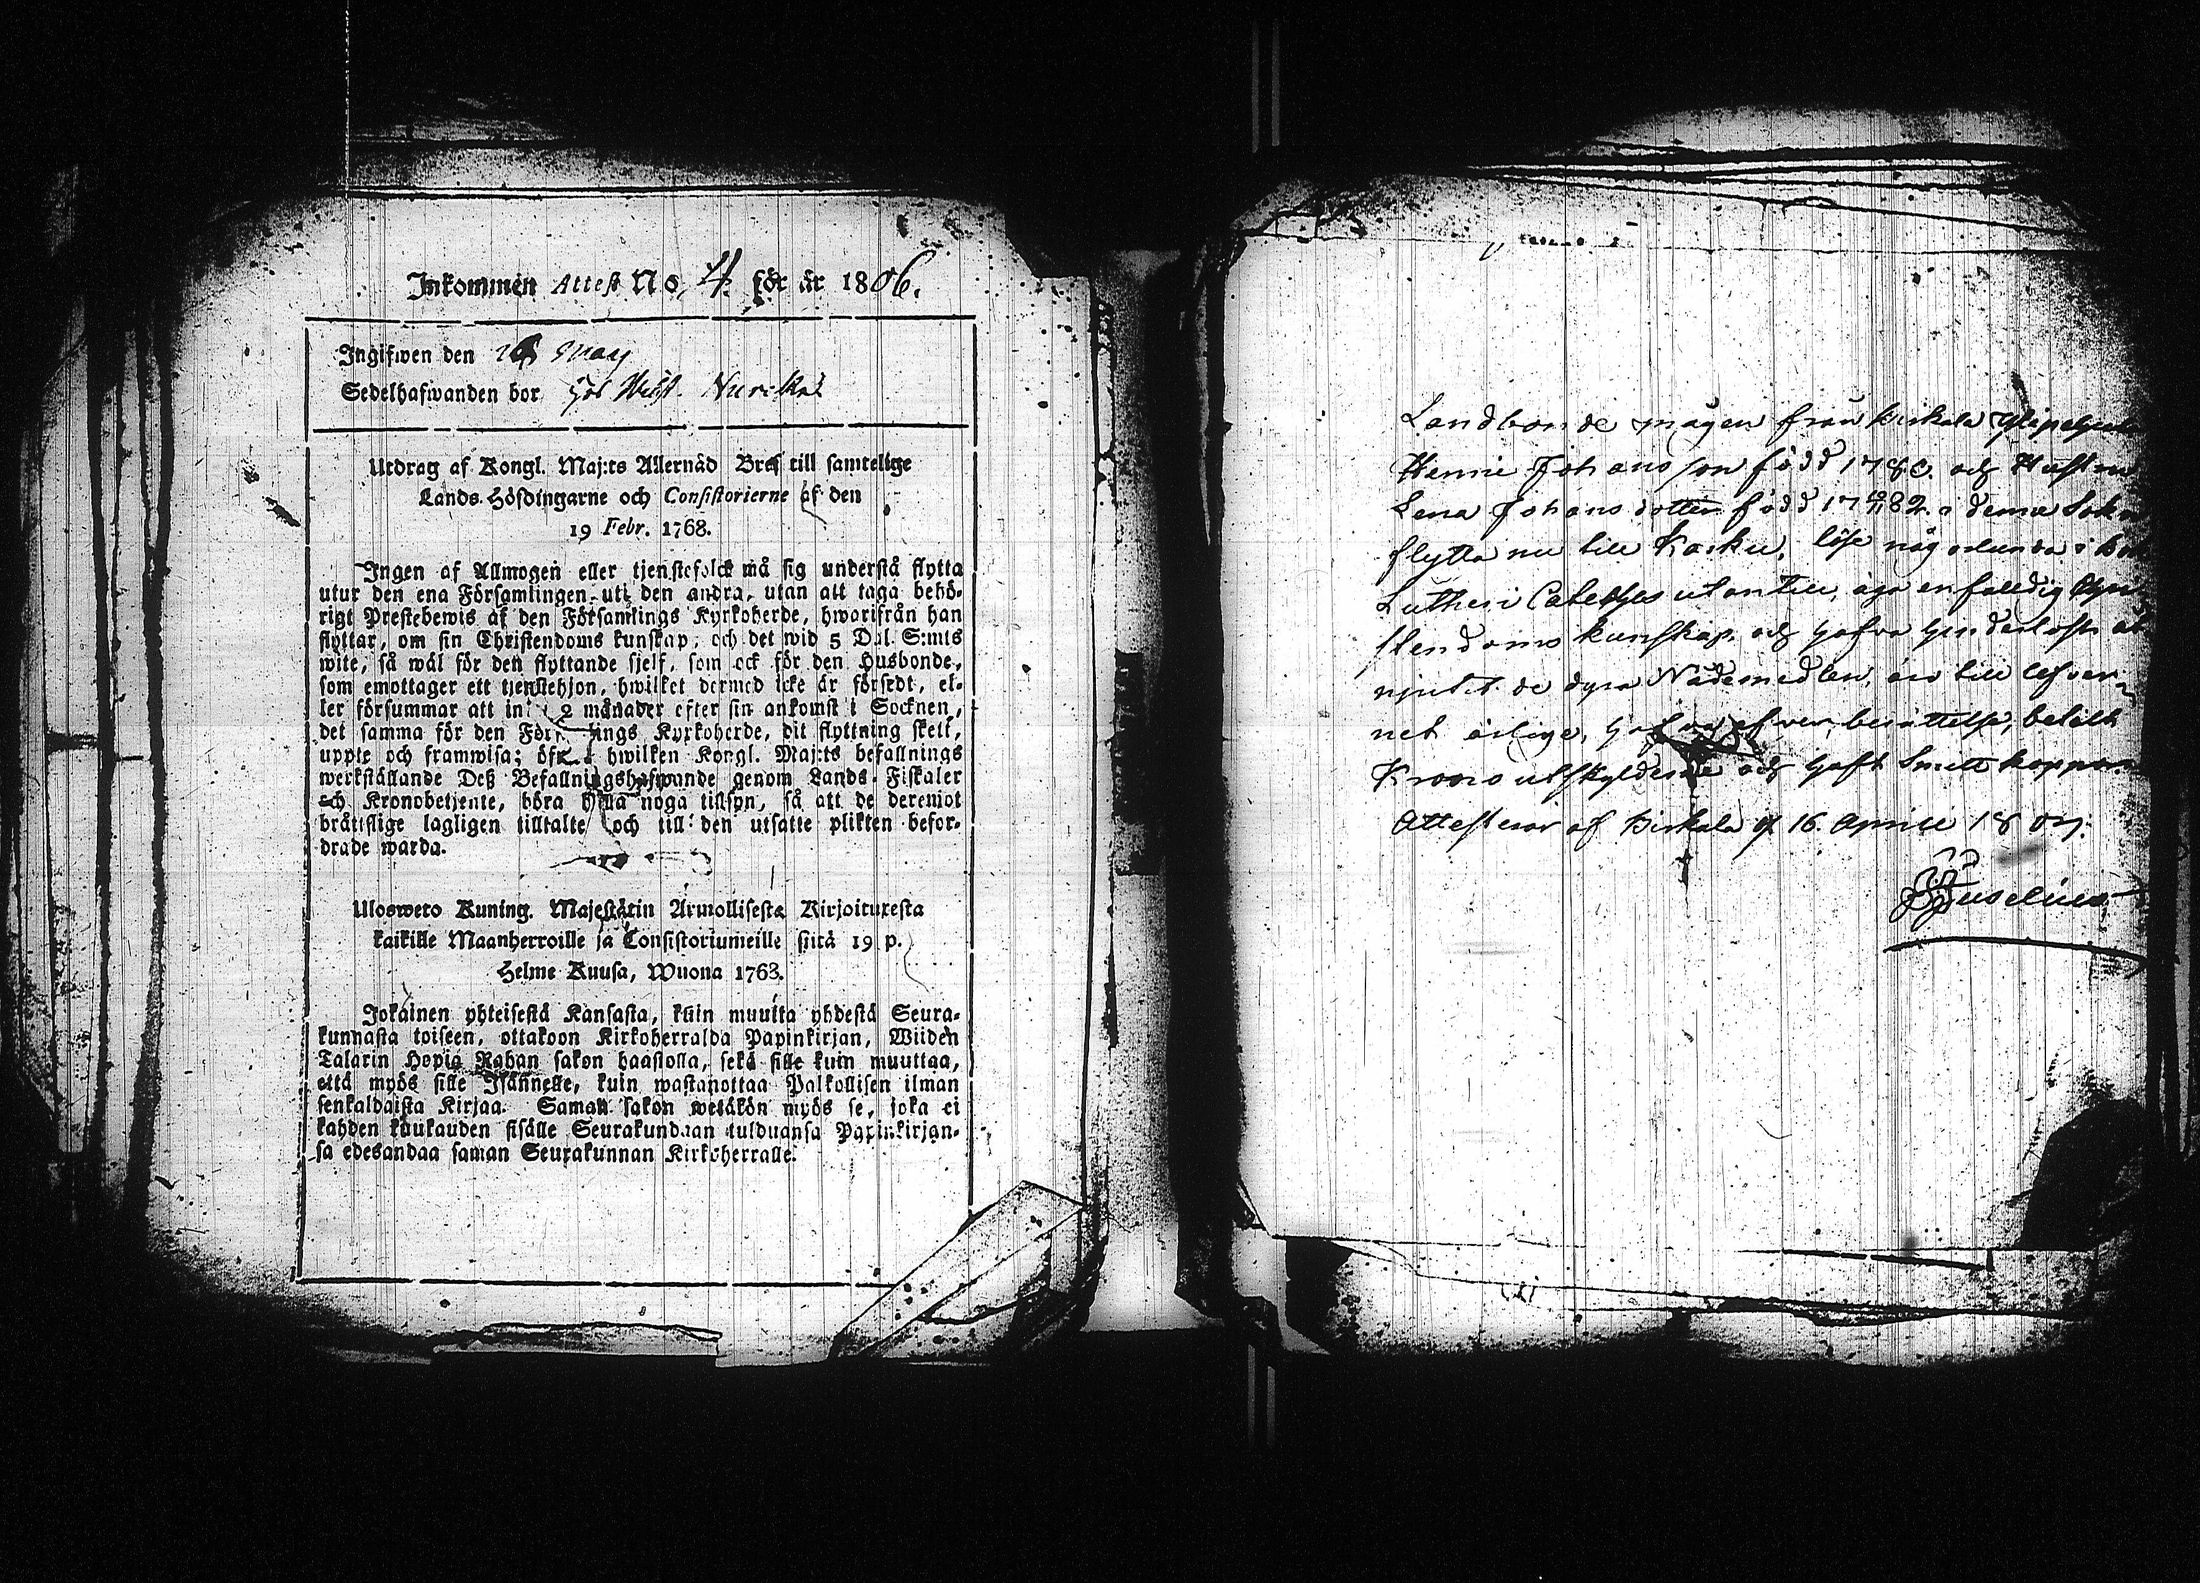 Inkommen Attest No. 4. för år 1806.
Ingifwen den 16 May
Sedelhafwanden bor hos
Utdrag af Kongl. Maj:ts Allernåd Bref till samtelige
Lands-Höfdingarne och Consistorierne af den
19 Febr. 1768.
Ingen af Allmogen eller tjenstefolck må sig understå flytta
utur den ena Församlingen uti den andra, utan att taga behö-
rigt Prestebewis af den Församlings Kyrkoherde, hwarifrån han
flyttar, om sin Christendoms kunskap, och det wid 5 Dal. S:mts
wite, så wäl för den flyttande sjelf, som ock för den Husbonde,
som emottager ett tjenstehjon, hwilket dermed icke är försedt, el-
ler försummar att in 2 månader efter sin ankomst i Socknen,
det samma för den Församlings Kyrkoherde, dit flyttning skett,
uppte och framwisa; öfwer hwilken Kongl. Maj:ts befallnings
werkställande Deß Befallningshafwande genom Lands-Fiskaler
och Kronobetjente, böra hålla noga tillsyn, så att de deremot
bråttslige lagligen tilltalte och till den utsatte plikten befor-
drade warda.
Ulosweto Kuning. Majestätin Armollisesta Kirjoituxesta
kaikille Maanherroille ja Consistoriumeille siitä 19 p.
Helme Kuusa, Wuona 1763.
Jokainen yhteisestä Kansasta, kuin muutta yhdestä Seura-
kunnasta toiseen, ottakoon Kirkoherralda Papinkirjan, Wiiden
Talarin Hopia Rahan sakon haastolla, sekä sille kuin muuttaa,
että myös sille Isännelle, kuin wastanottaa Palkollisen ilman
senkaldaista Kirjaa. Saman sakon wetäkön myös se, joka ei
kahden kuukauden sisälle Seurakundaan tulduansa Papinkirjan-
sa edesandaa saman Seurakunnan Kirkoherralle.
Landbonde mågen från Birkala
Henric Johansson född och Hustru
Lena Johansdotter född 1782. i denne Sokn
flytta nu till Karku, läsa någorlunda i bok
Lutheri Cateches utantill, äga enfaldig Chri-
stendoms kunskap, och hafva hinderlöst åt-
njutit de dyra Nådemedlen, äro till lefver-
net ärlige, hafva berättelse, betalt
Krono utskylderne och haft Smitt koppor
Attesterar af Birkala d. 16. April